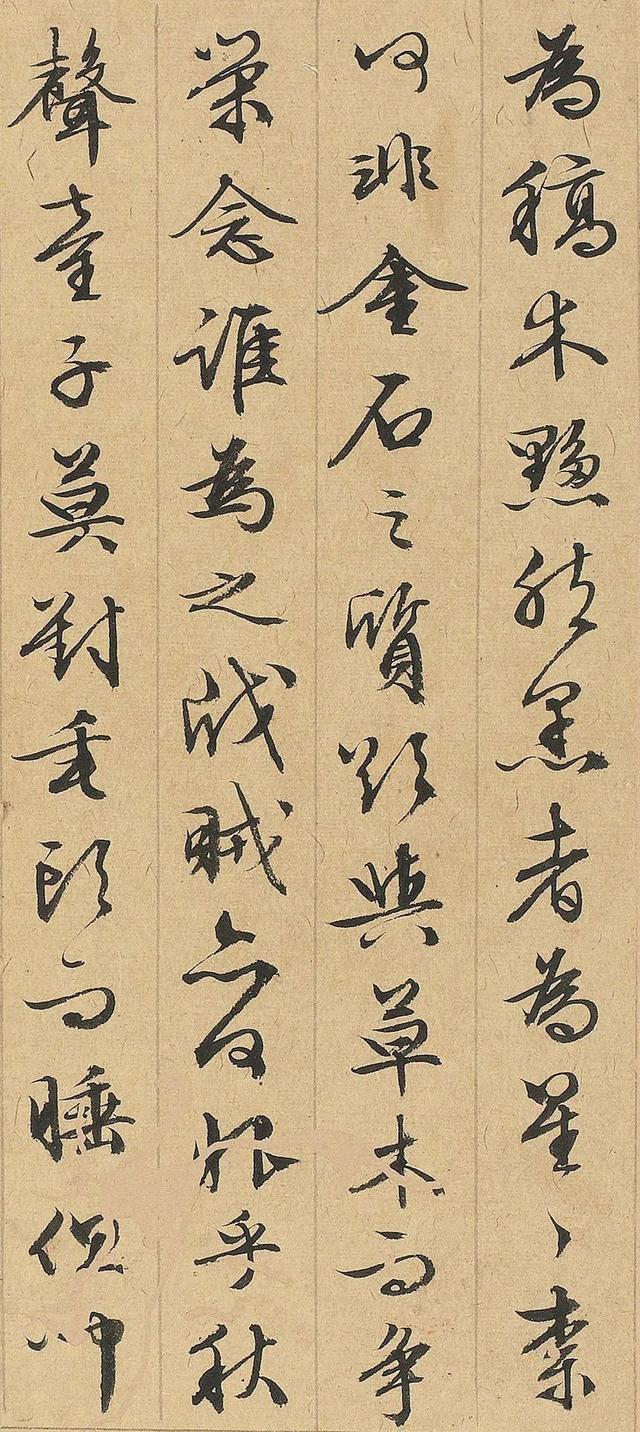 為稿木黟然黑者為星〻柰
何非金石之質欲與草木而爭
榮念誰為之戕賊亦何恨乎秋
聲童子莫對垂頭而睡但聞